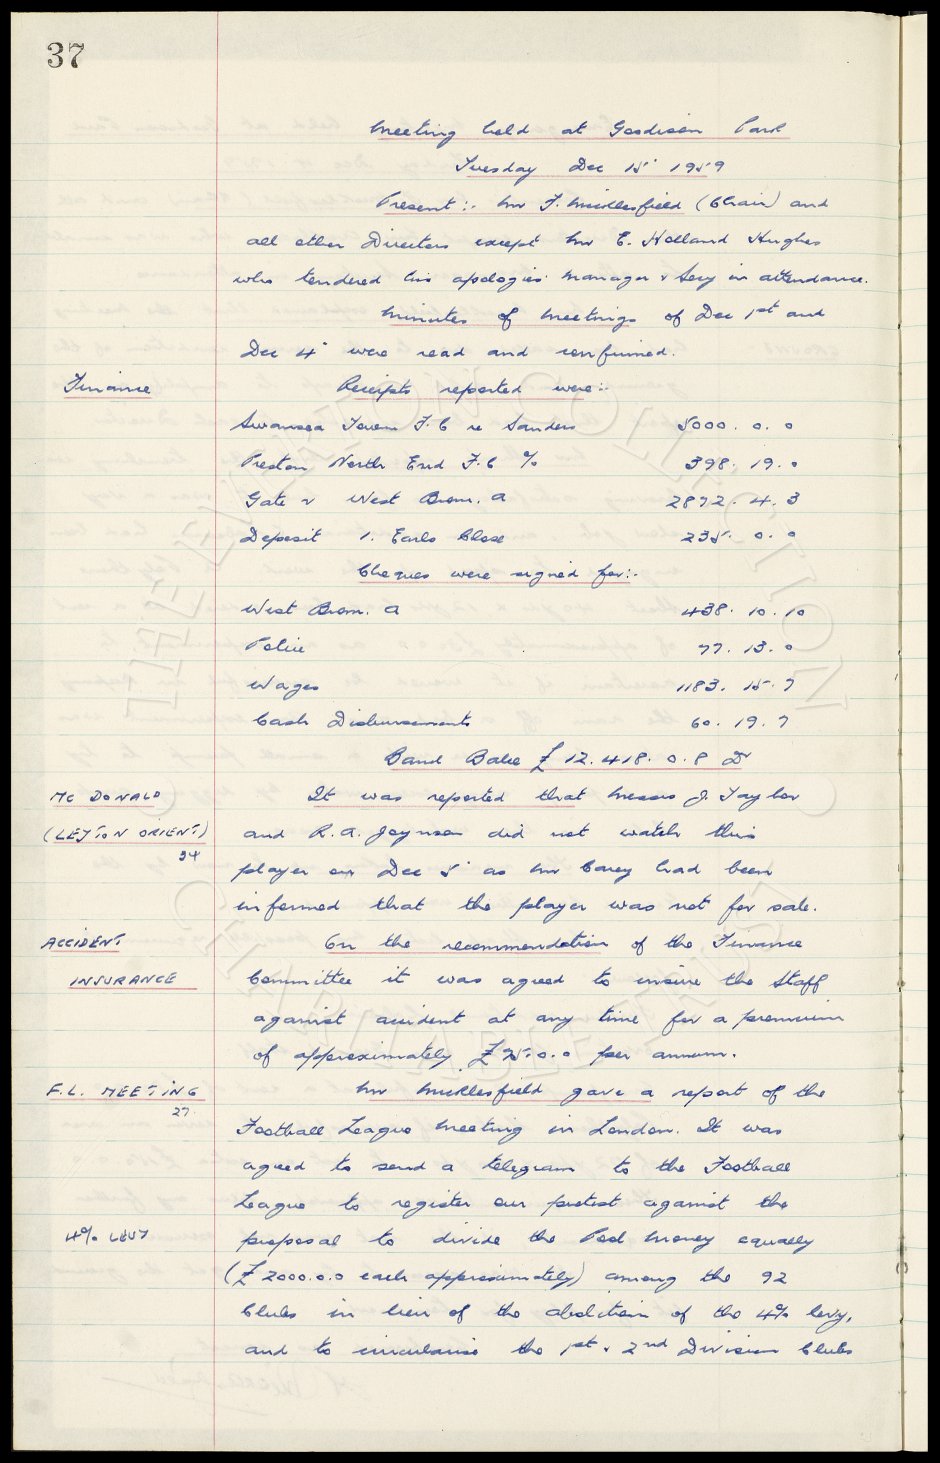 37
Meeting held at Goodison Park
Tuesday Dec 15" 1959
Present :- Mr F. Micklesfield (Chair) and
all other Directors except Mr C. Holland Hughes
who tendered his apologies. Manager & Secy in attendance.
Minutes of meetings of Dec 1st and
Dec 4" were read and confirmed.
Finance
Receipts reported were :-
Swansea Town F.C re Sanders 5000. 0. 0
Preston North End F.C % 398. 19. 0
Gate v West Brom. A 2872. 4. 3
Deposit 1. Earls Close 235. 0. 0
Cheques were signed for:-
West Brom. A 438. 10. 10
Police 77. 13. 0
Wages 1183. 15. 7
Cash Disbursements 60. 19. 7
Bank Balce £12.418. 0. 8 Dr
Mc DONALD
(LEYTON ORIENT)
34
It was reported that Messrs J. Taylor
and R.A. Joynson did not watch this
player on Dec 5" as Mr Carey had been
informed that the player was not for sale.
ACCIDENT
INSURANCE
On the recommendation of the Finance
Committee it was agreed to insure the Staff
against accident at any time for a premium
of approximately £ . 0. 0 per annum.
F.L. MEETING
27.
Mr Micklesfield gave a report of the
Football League Meeting in London. It was
agreed to send a telegram to the Football
League to register our protest against the
4% LEVY
proposal to divide the Pool Money equally
(£2000.0.0 each approximately) among the 92
Clubs in lieu of the abolition of the 4% levy,
and to circularise the 1st & 2nd Division Clubs
THE EVERTON COLLECTION
CHARITABLE TRUST